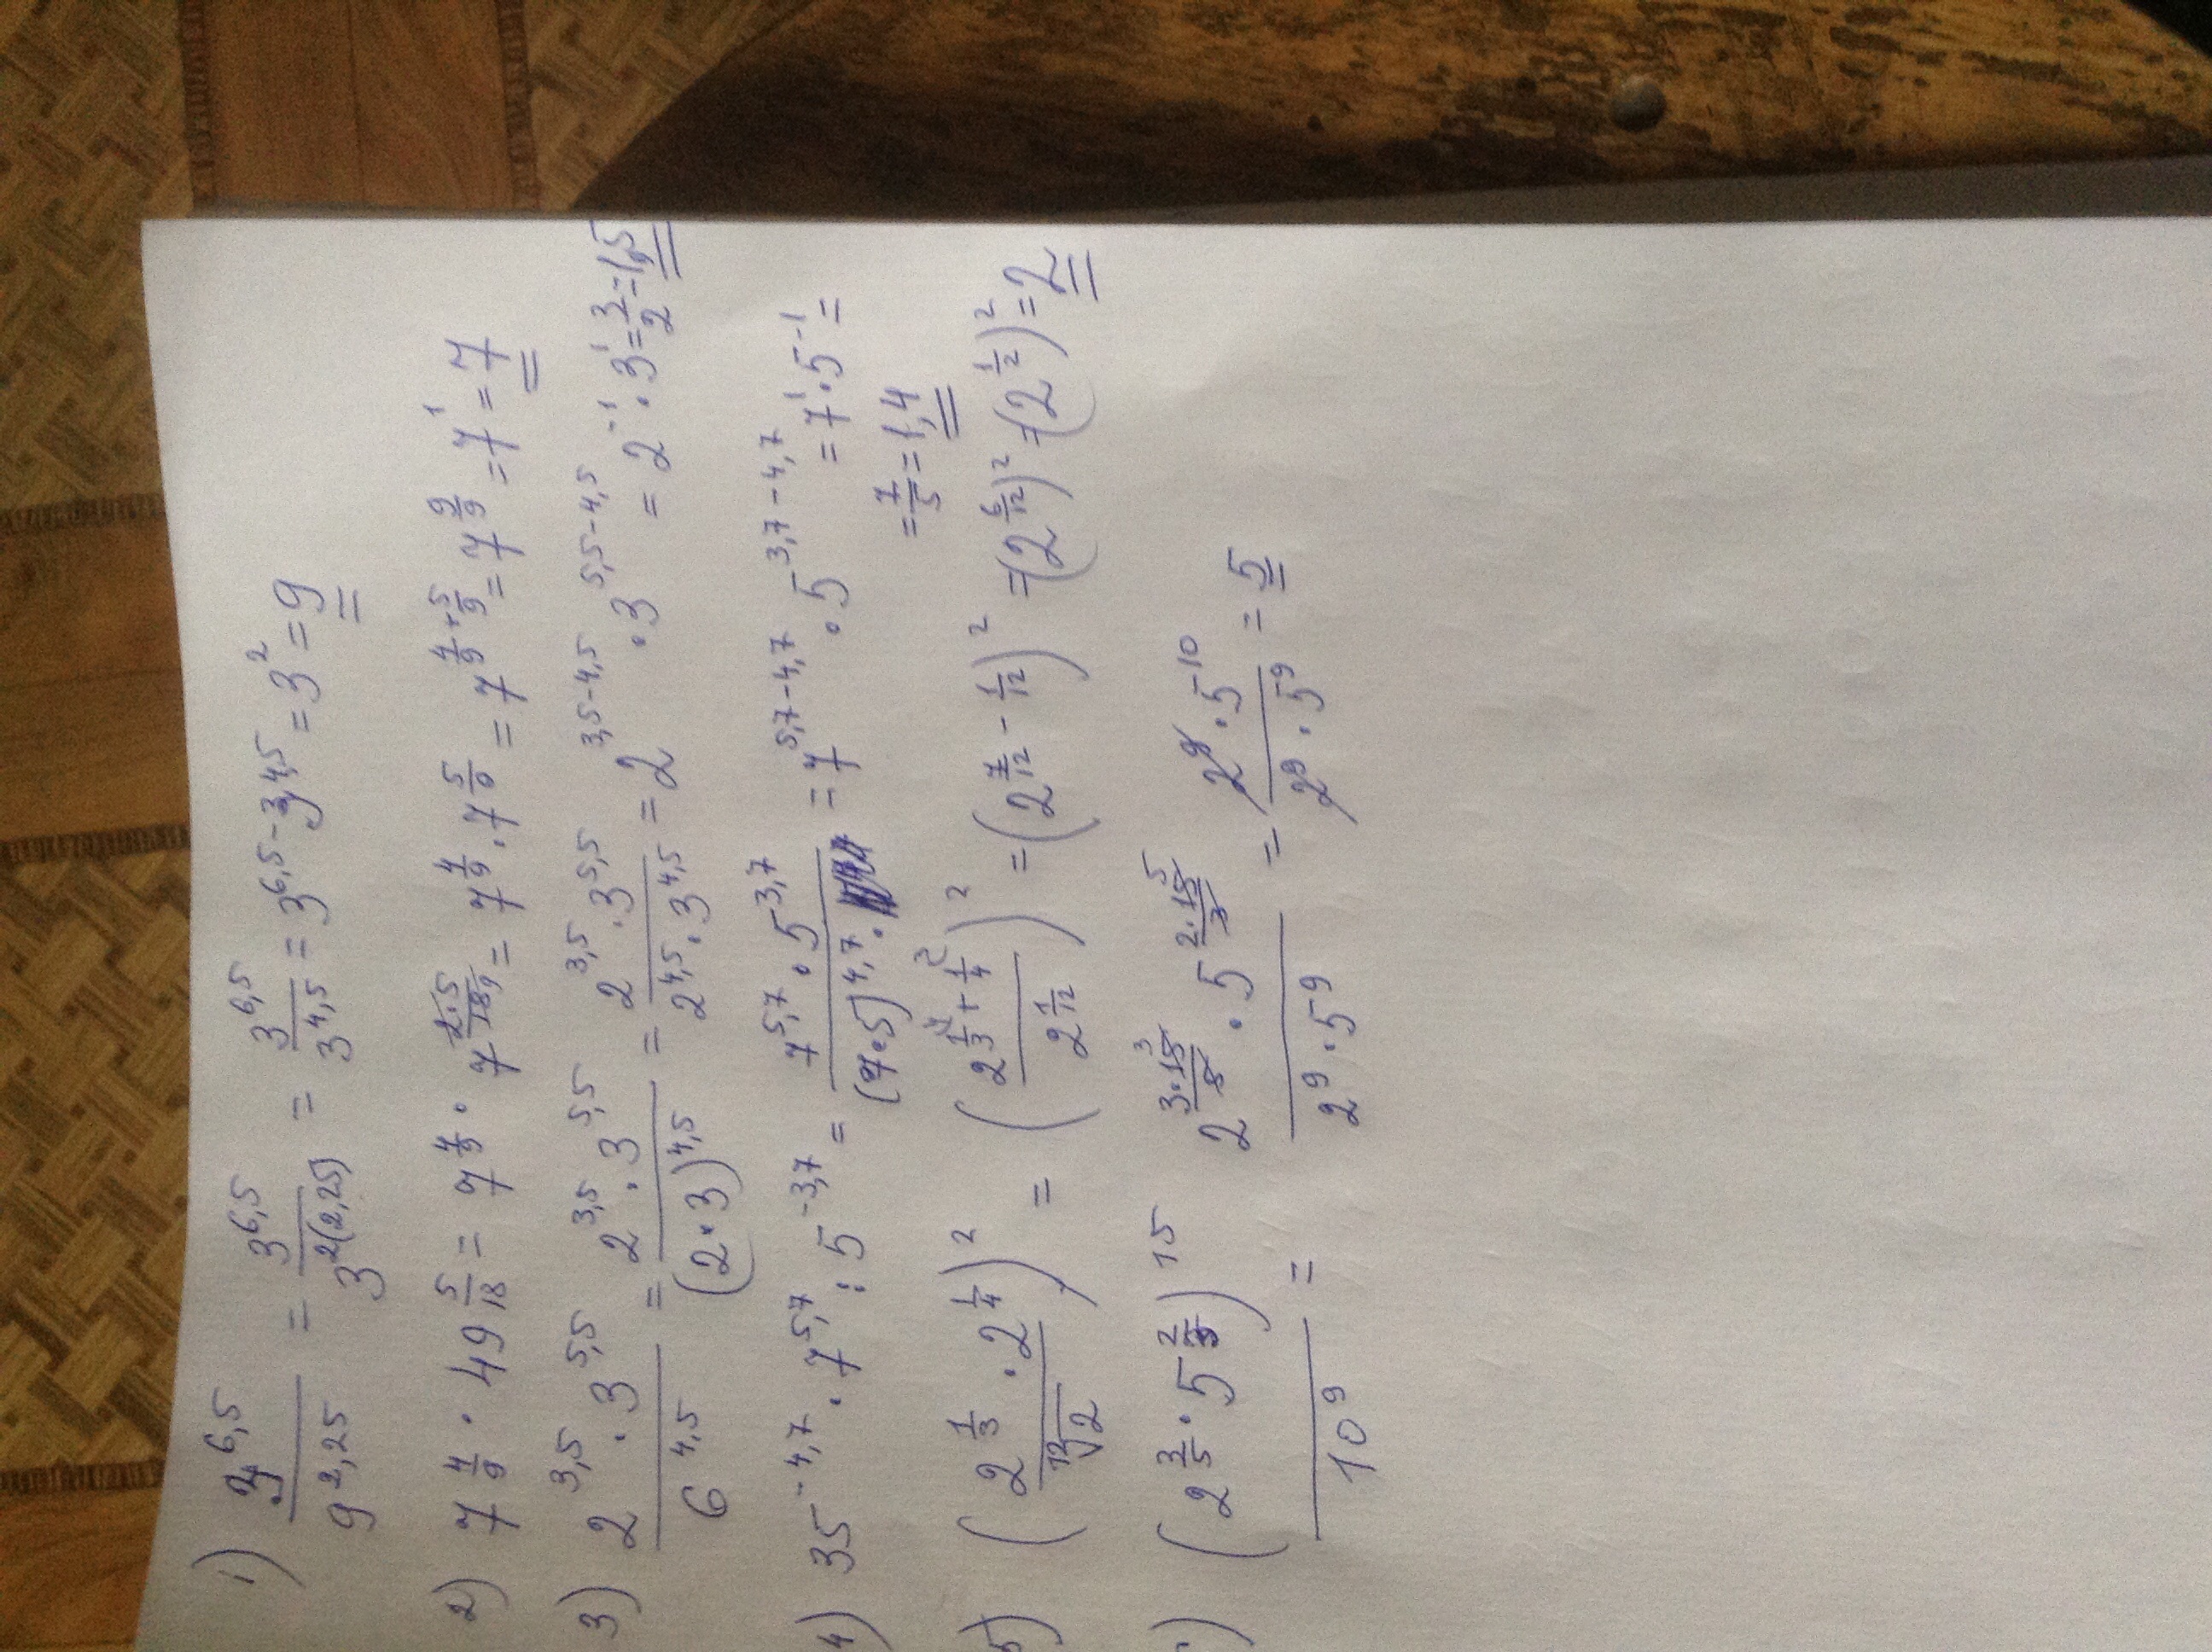 1) 3^6,5 / 9^2,25 = 3^6,5 / 3^2(2,25) = 3^6,5 / 3^4,5 = 3^6,5-4,5 = 3^2 = 9
2) 7^4/9 · 49^5/18 = 7^4/9 · 7^2·5/18 9 = 7^4/9 · 7^5/9 = 7^4/9+5/9 = 7^9/9 = 7^1 = 7
3) 2^3,5 · 3^5,5 / 6^4,5 = 2^3,5 · 3^5,5 / (2·3)^4,5 = 2^3,5 · 3^5,5 / 2^4,5 · 3^4,5 = 2^3,5-4,5 · 3^5,5-4,5 = 2^-1 · 3^1 = 3/2 = 1,5
4) 35^-4,7 · 7^5,7 : 5^-3,7 = 7^5,7 · 5^3,7 / (7·5)^4,7 · = 7^5,7-4,7 · 5^3,7-4,7 = 7^1 · 5^-1 =
= 7/5 = 1,4
5) (2^1/3 · 2^1/4 / 12√2)^2 = (2^1/3+1/4 / 2^1/12)^2 = (2^7/12 - 1/12)^2 = (2^6/12)^2 = (2^1/2)^2 = 2
) (2^3/5 · 5^2/3)^15 / 10^9 = 2^3·15 3/5 · 5^2·15 5/3 / 2^9 · 5^9 = 2^9 · 5^10 / 2^9 · 5^9 = 5